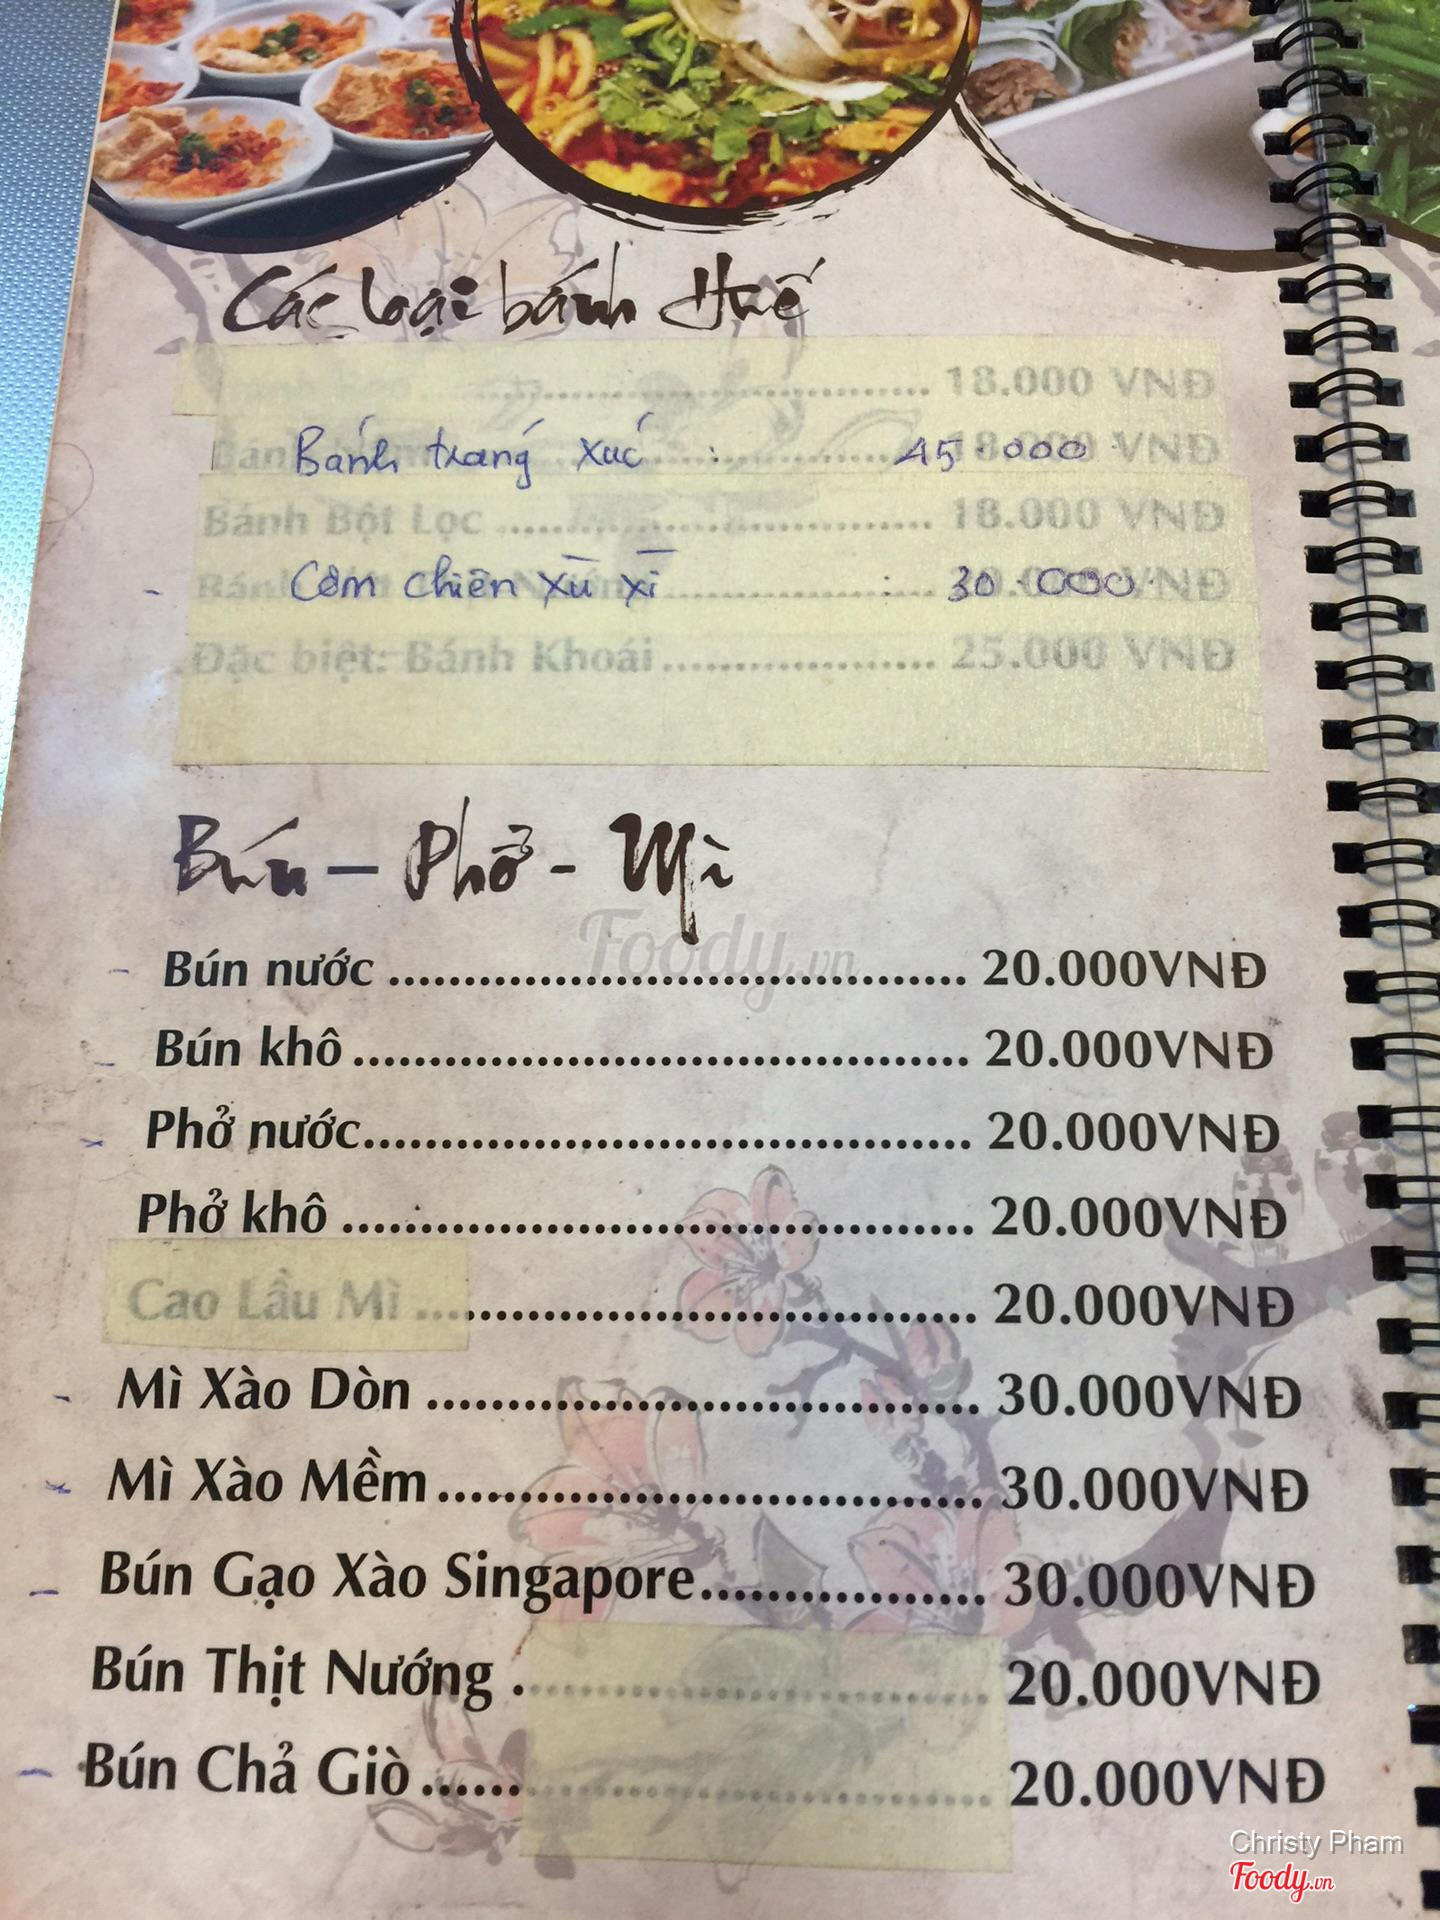 Các loại bánh Huế
18.000 VNĐ
Bánh tráng xúc : 45.000
18.000 VNĐ
Bánh Bột Lọc 18.000 VNĐ
- Cơm chiên xù xì : 30.000
Đặc biệt: Bánh Khoái 25.000 VNĐ
Bún - Phở - Mì
Foody.vn
Bún nước 20.000VNĐ
Bún khô 20.000VNĐ
Phở nước 20.000VNĐ
Phở khô 20.000VNĐ
Cao Lầu Mì 20.000VNĐ
Mì Xào Dòn 30.000VNĐ
Mì Xào Mềm 30.000VNĐ
Bún Gạo Xào Singapore 30.000VNĐ
Bún Thịt Nướng 20.000VNĐ
Bún Chả Giò 20.000VNĐ
Christy Pham
Foody.vn